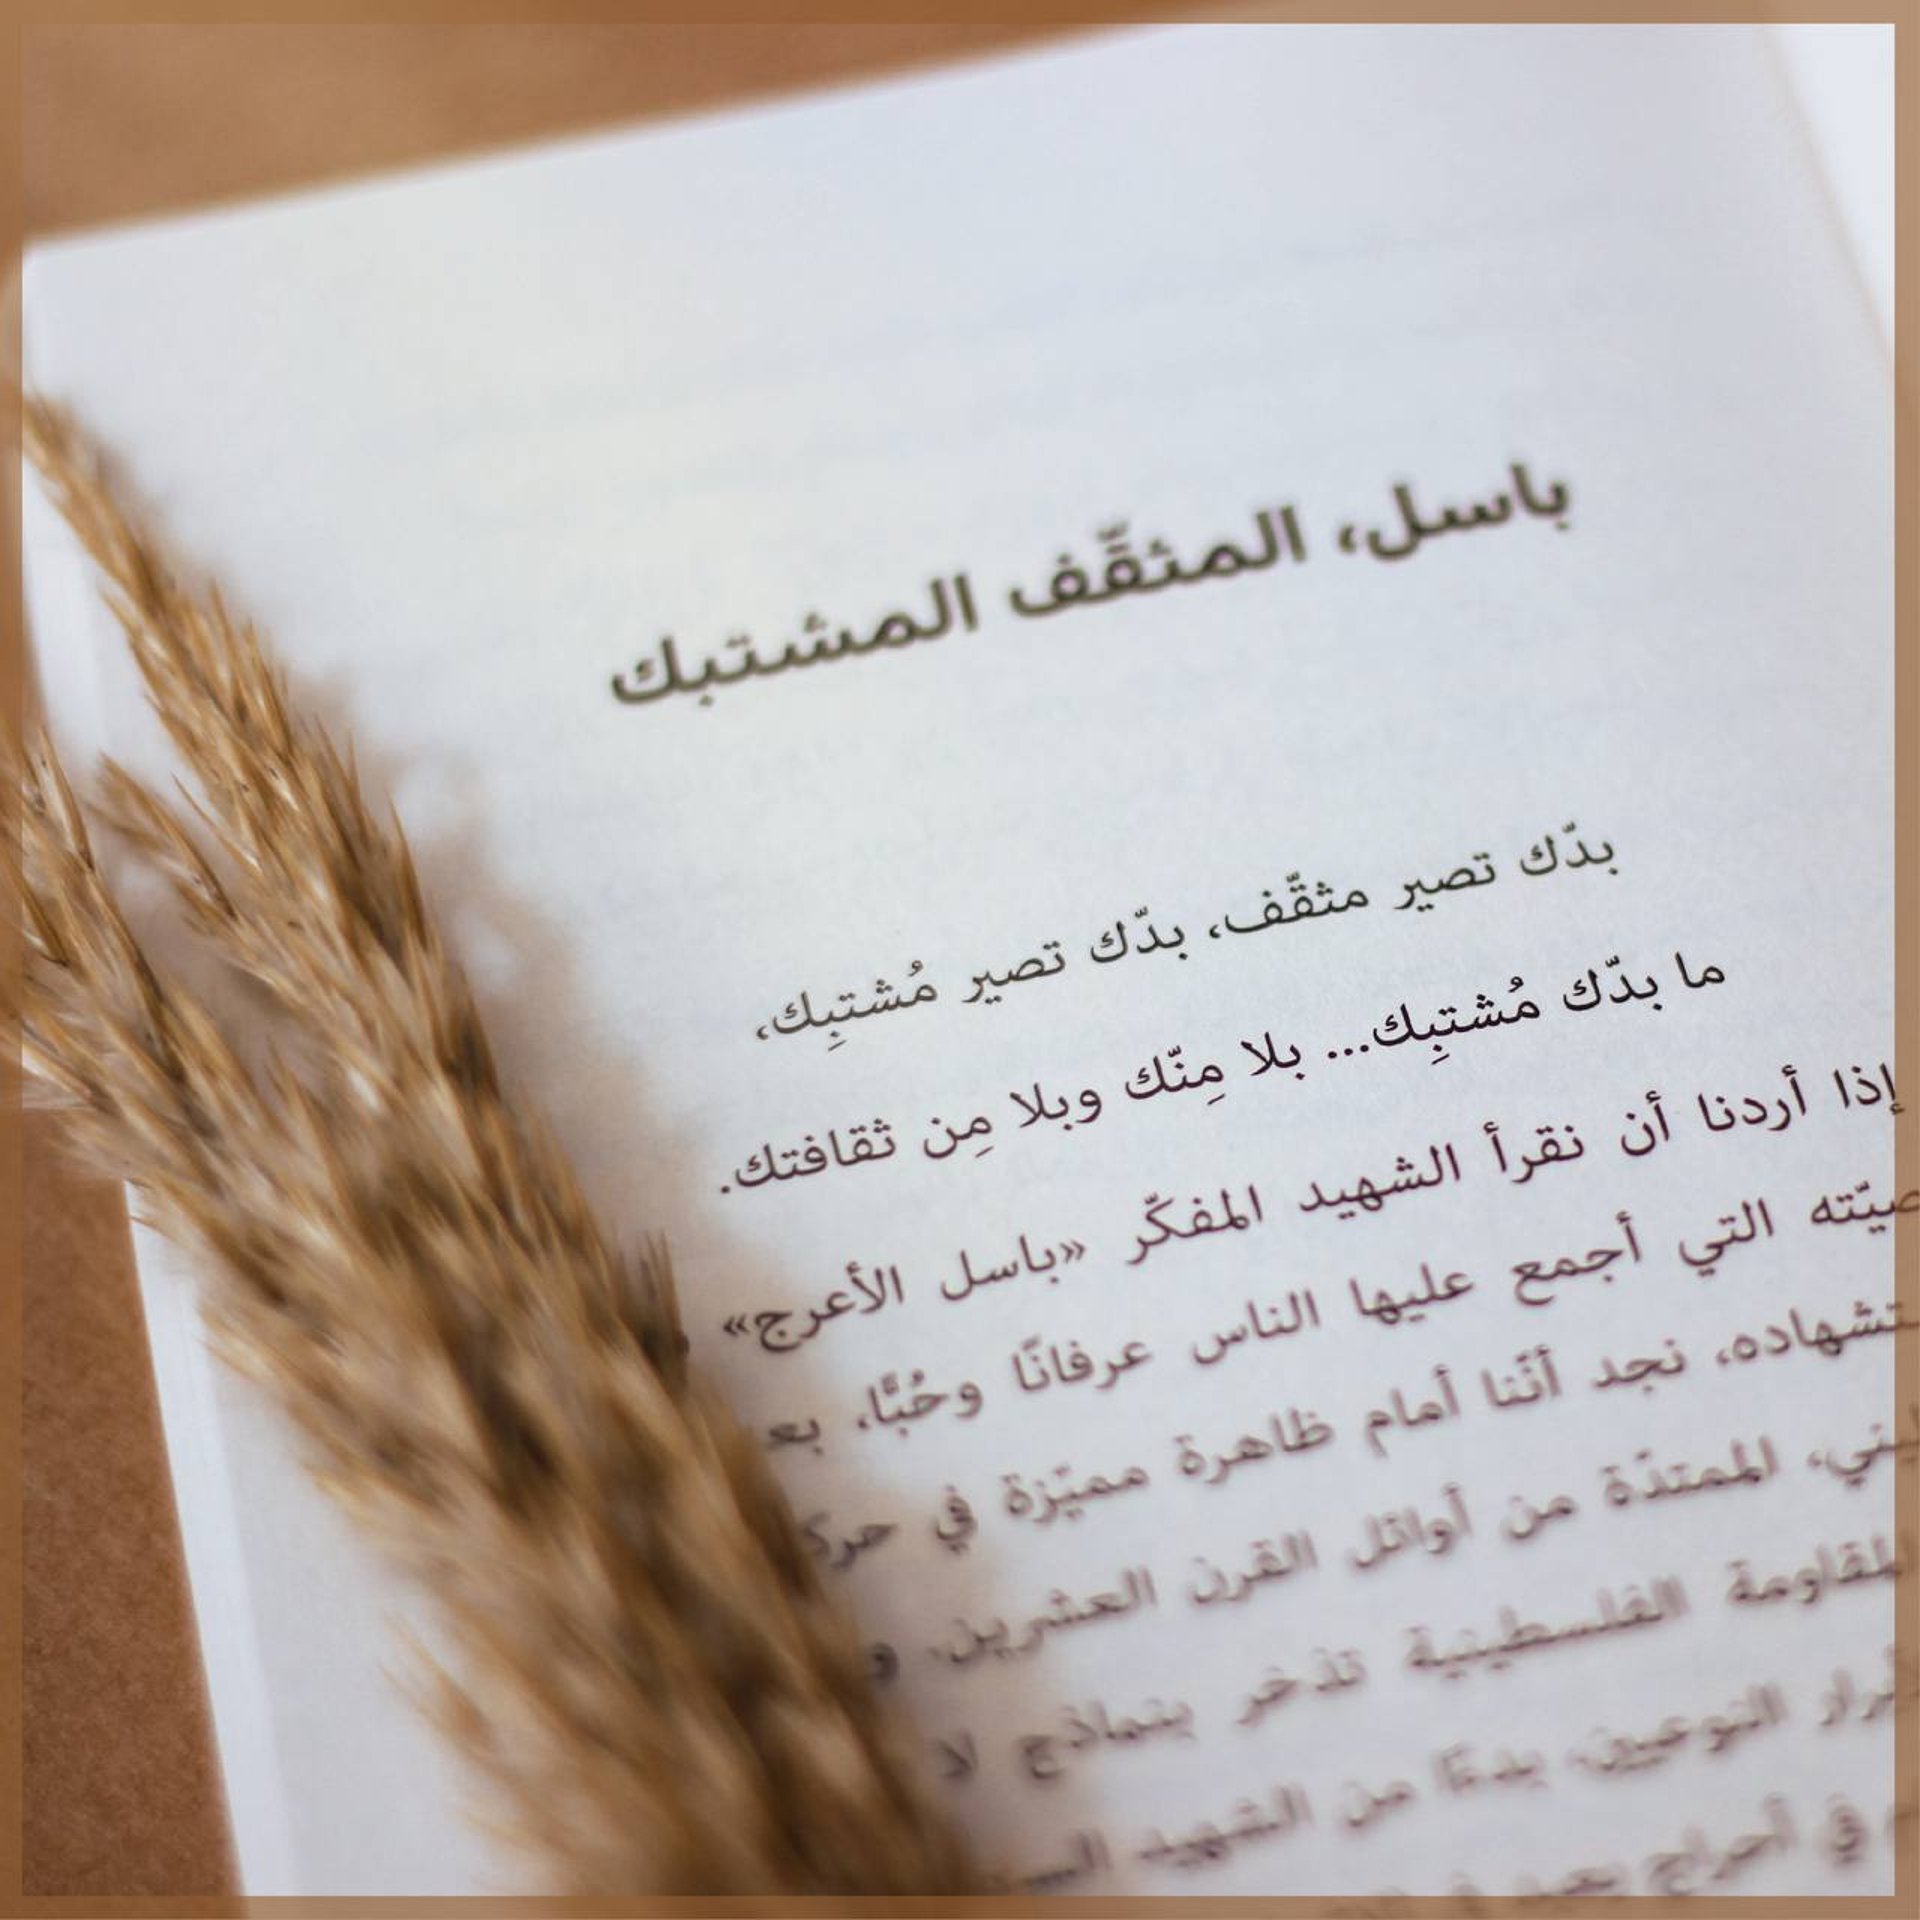 باسل، المثقَّف المشتبك
بدّك تصير مثقّف، بدّك تصير مُشتبِك،
ما بدّك مُشتبِك... بلا مِنّك وبلا مِن ثقافتك.
إذا أردنا أن نقرأ الشهيد المفكّر «باسل الأعرج»
التي أجمع عليها الناس عرفانًا وحُبًّا، بعد
نجد أنّنا أمام ظاهرة مميّزة في
الممتدّة من أوائل القرن العشرين، و
المقاومة الفلسطينية تذخر بنماذج لا
النوعيين، بدءًا من الشهيد
في أحراج يعبد في